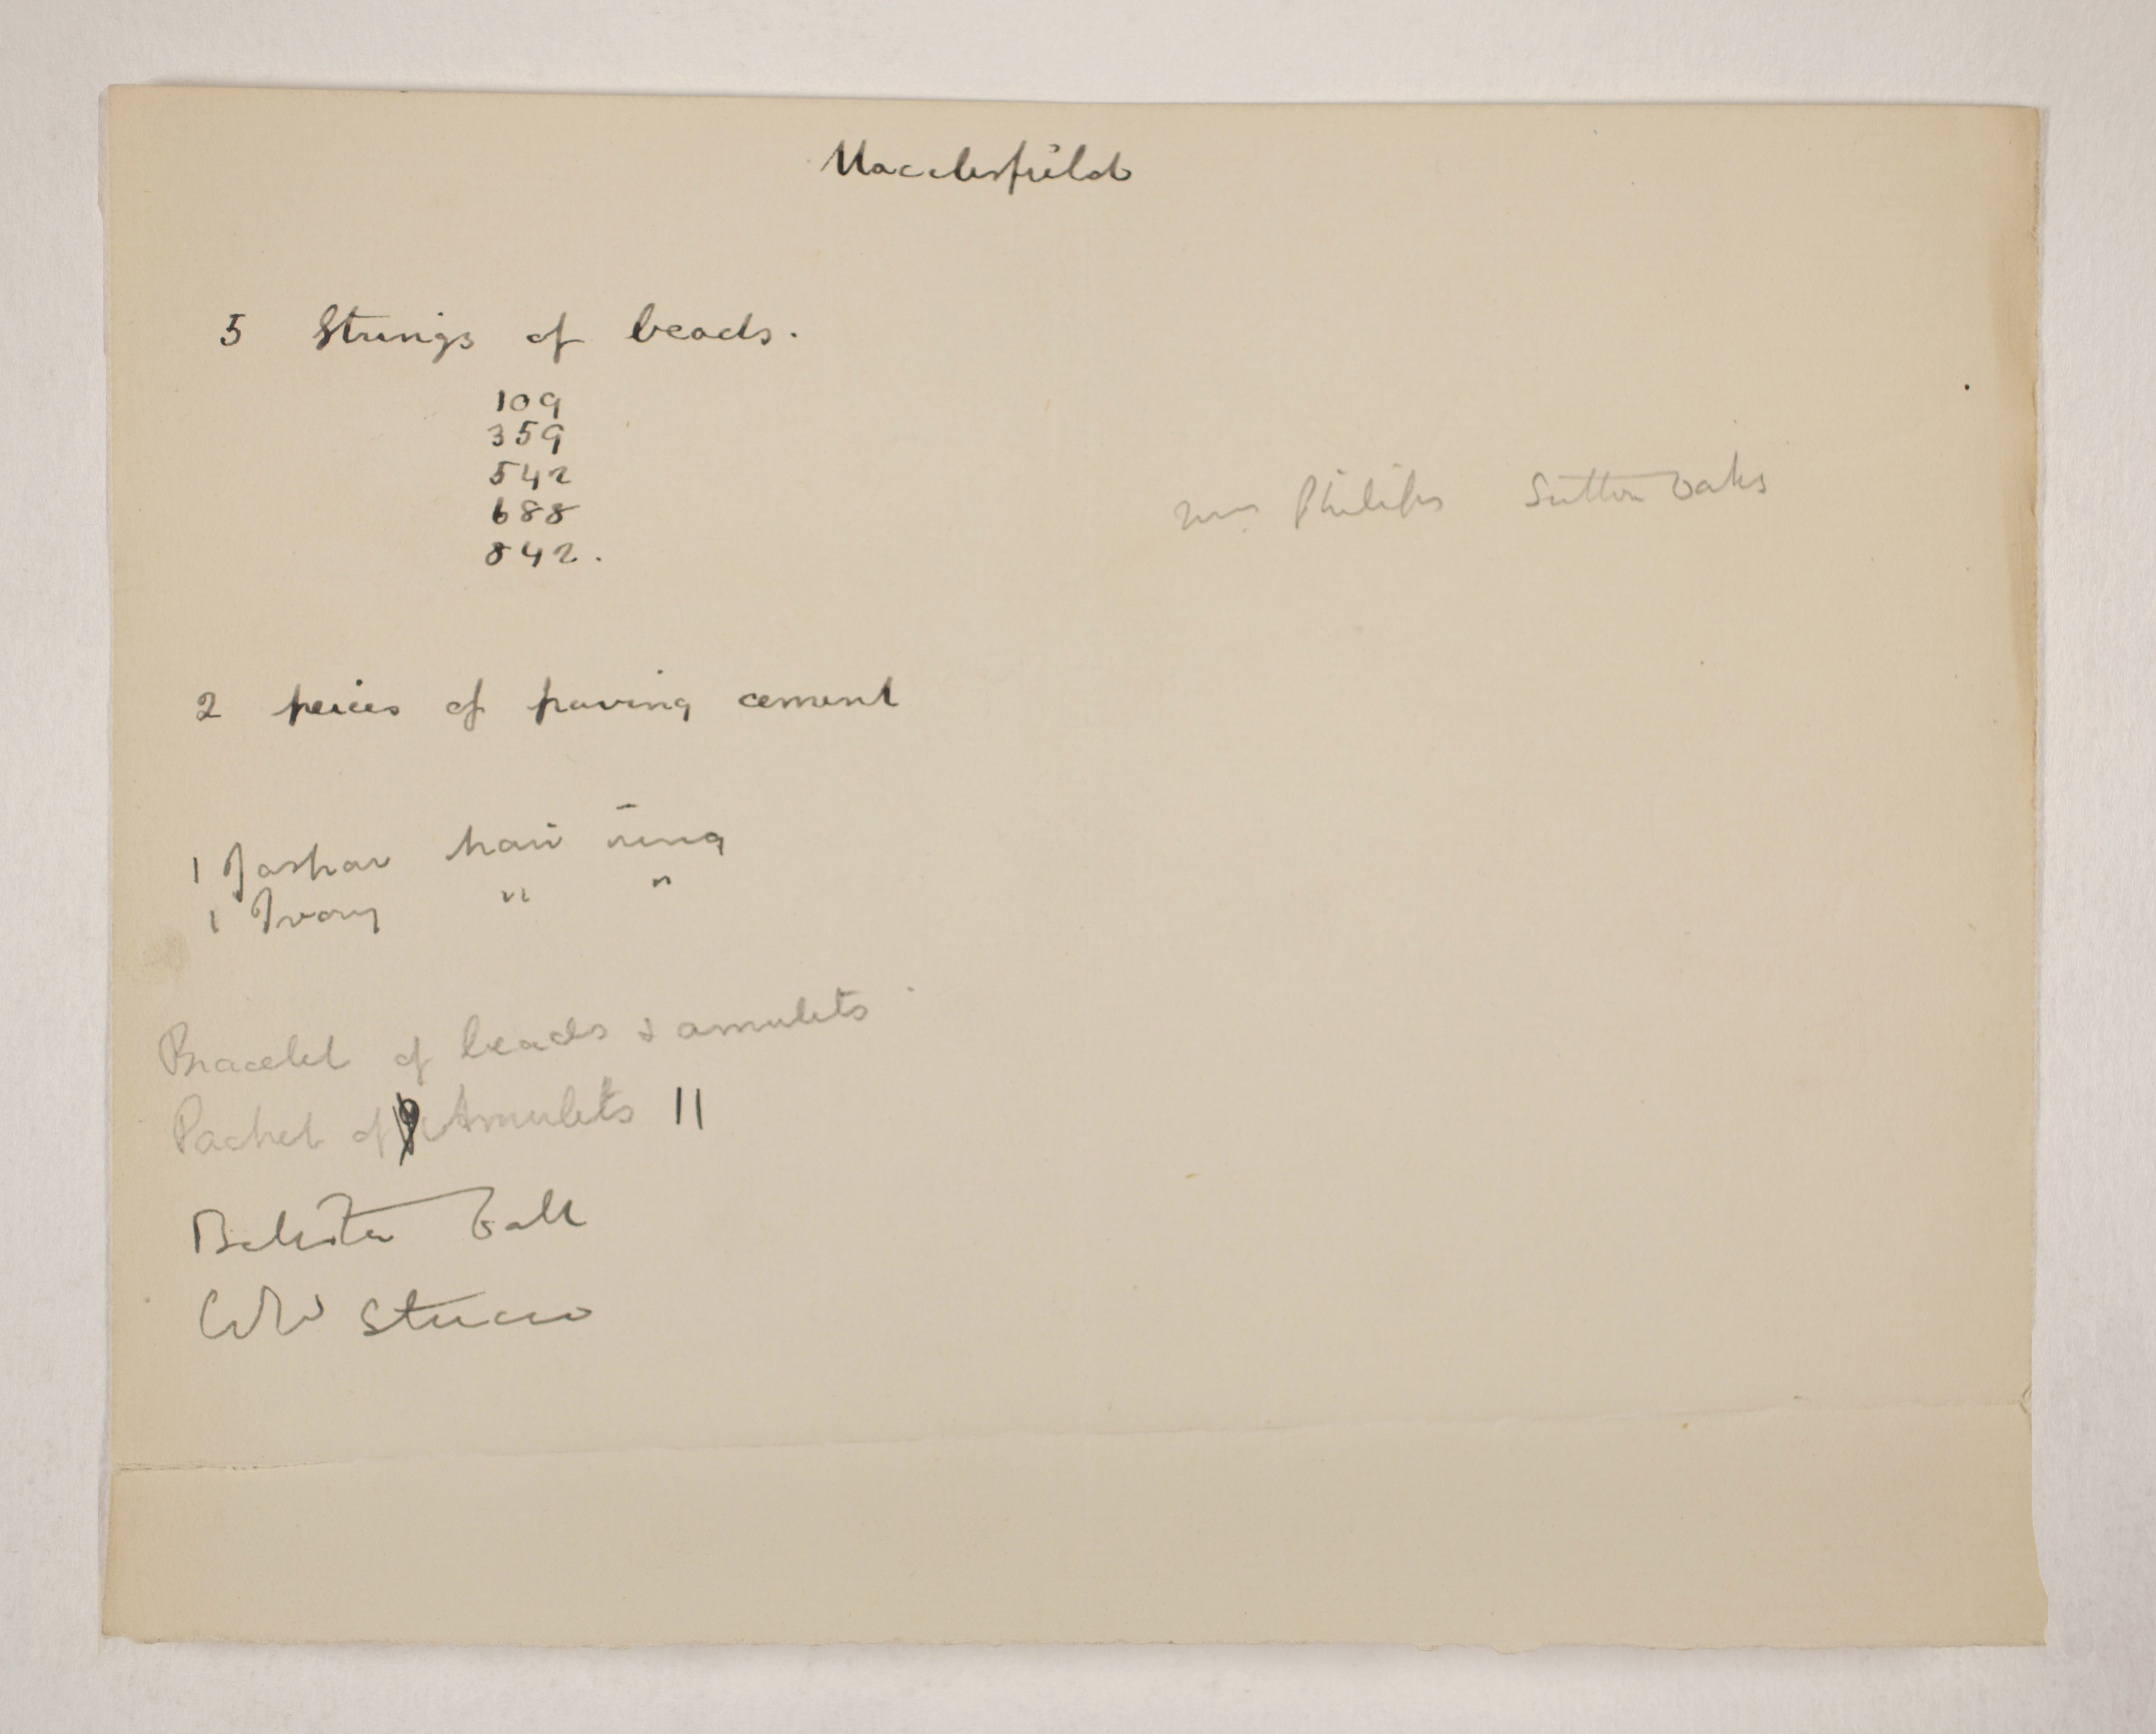 Macclesfield
5 Strings of beads.
109
359
542
688
842.
Mrs Philips Sutton Oaks
2 peices of paving cement
1 Jashar hair ring
1 Ivory " "
Bracelet of beads & amulets
Packet of Amulets 11
ball
Stucco